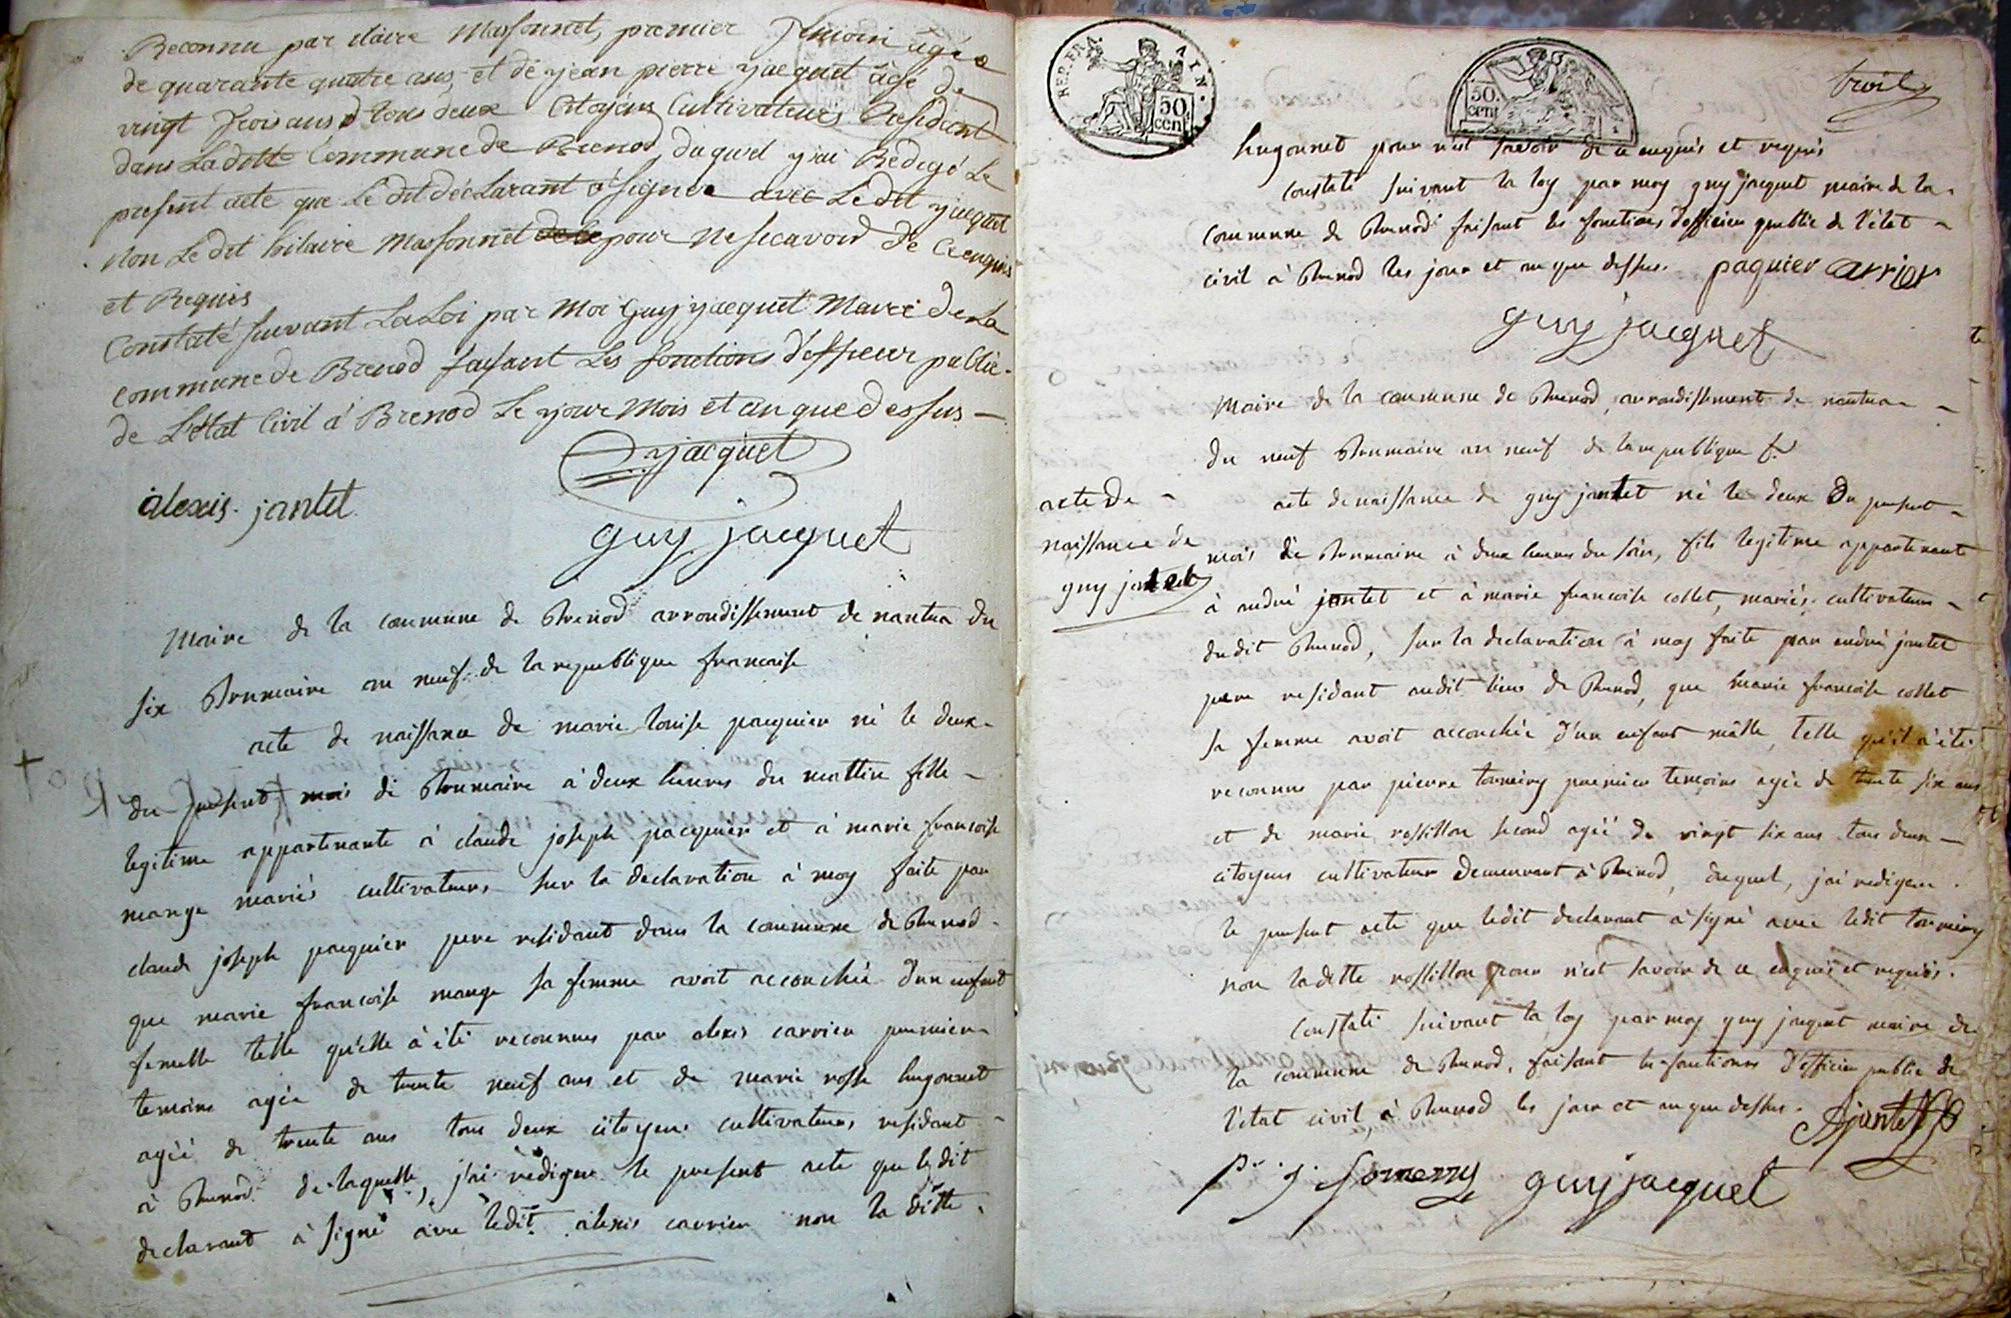 Reconnu par claire Massonnet, premier Temoin âgée
de quarante quatre ans, et de yjean pierre yjacquet âgé de
vingt trois ans tous deux Citoyens Cultivateurs Residant
dans Ladotte Commune de Brenod, duquel y'ai Redegé Le
present acte que Le dit déclarant a signer avec Le dit yjacquet
Non Le dit hilaire Massonnet pour Ne scavoir de Ce enquis
et Requis
Constaté suivant La Loi par Moi Guy yjacquet Maire de La
Commune de Brenod faisant Les fonctions d'officier public
de L'état Civil à Brenod Le yjour Mois et an que dessus
yjacquet
alexis jantet
guy jacquet
Maire de la commune de Brenod arrondissement de nantua du
six Brumaire an neuf de la republique francaise
acte de naissance de marie louise pacquier né le deux
du present mois de Brumaire à deux heures du mattin fille
legitime appartenante à claude joseph pacquier et à marie francoise
mange mariés cultivateurs sur la declaration à moy faite par
claude joseph pacquier pere residant dans la commune de Brenod
que marie francoise mange sa femme avoit accouchée d'un enfant
femelle telle qu'elle à été reconnue par alexis carrier premier
temoins agée de trente neuf ans et de marie rosse hugonnet
agée de trente ans tous deux citoyens cultivateurs residant
à Brenod de laquelle, j'ai redigere le present acte que ledit
declarant à signé avec ledit alexis carrier non la ditte
REP. FRA. AIN.
50 cen
50 cent
trois
hugonnet pour n'est savoir de ce enquis et requis
Constaté suivant la loy par moy guy jacquet maire de la
commune de Brenod faisant les fonctions d'officier public de l'état
civil à Brenod les jour et an que dessus. paquier carrier
guy jacquet
Maire de la commune de Brenod, arrondissement de nantua
du neuf Brumaire an neuf de la republique f.
acte de
naissance de
guy jantet
acte de naissance de guy jantet né le deux du present
mois de Brumaire à deux heures du soir, fils legitime appartenant
à andré jantet et à marie francoise collet, mariés cultivateurs
dudit Brenod, sur la declaration à moy faite par andré jantet
pere residant audit lieu de Brenod, que marie francoise collet
sa femme avoit accouchée d'un enfant mâlle, telle qu'il à été
reconnu par pierre torniery premier temoins agée de trente six ans
et de marie rossillon second agée de vingt six ans tous deux
citoyens cultivateur demeurant à Brenod, duquel, j'ai redigere
le present acte que ledit declarant à signé avec ledit
non laditte rossillon pour n'est savoir de ce enquis et requis.
Constaté suivant la loy par moy guy jacquet maire de
la commune de Brenod, faisant les fonctions d'officier public de
l'état civil, à Brenod les jour et an que dessus. Ajantet
guy jacquet